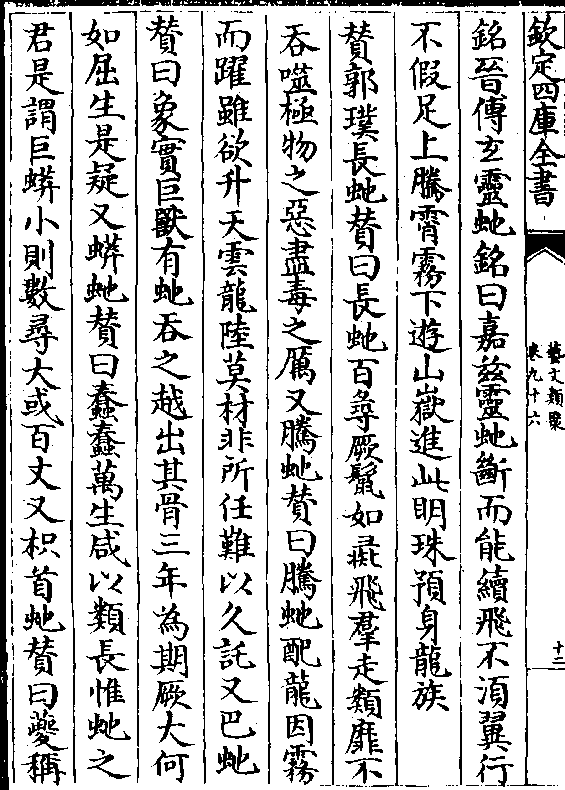 欽定四庫全書
藝文類聚
卷九十六
十二
銘晉傅玄靈虵銘曰嘉兹靈虵斷而能續飛不湏翼行
不假足上騰霄霧下遊山嶽進此明珠預身龍族
賛郭璞長虵賛曰長虵百尋厥鬛如彘飛羣走類靡不
吞噬極物之惡盡毒之厲又騰虵賛曰騰虵配龍因霧
而躍雖欲升天雲龍陸莫材非所任難以久託又巴虵
賛曰象實巨獸有虵吞之越出其骨三年為期厥大何
如屈生是疑又蟒虵賛曰蠢蠢萬生咸以類長惟虵之
君是謂巨蟒小則數尋大或百丈又枳首虵賛曰夔稱